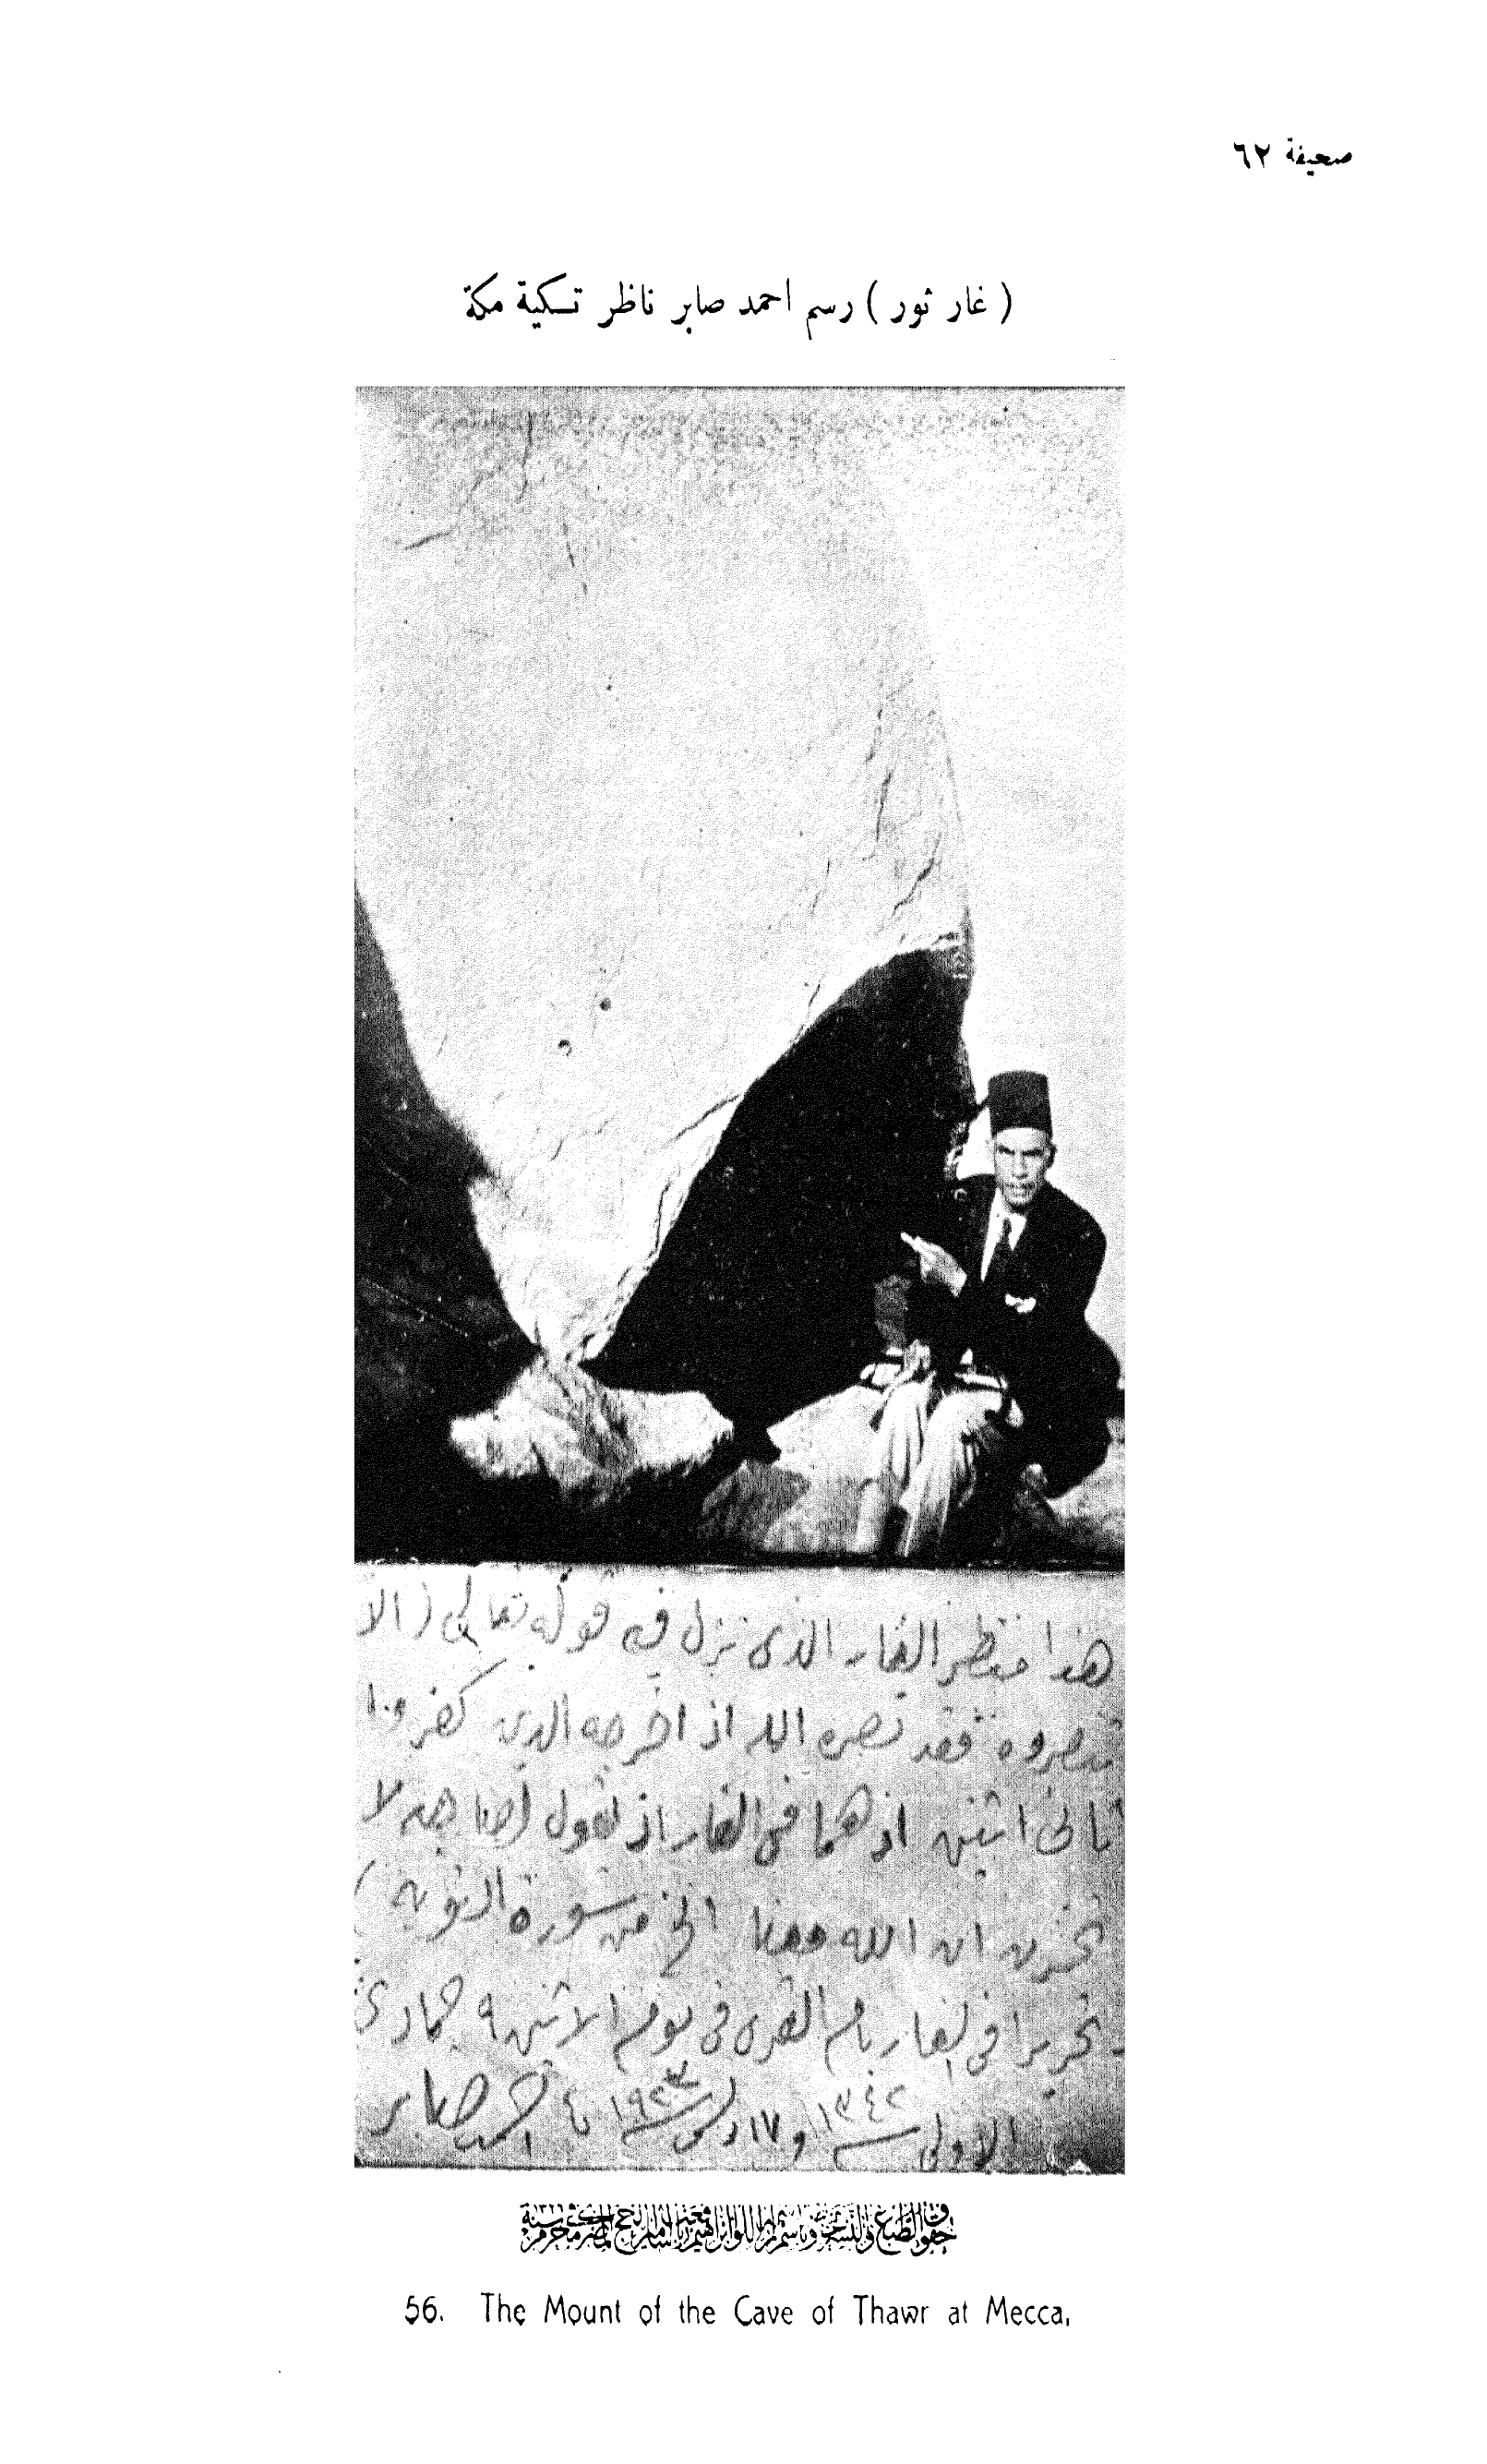 صحيفة ٦٢
( غار ثور ) رسم احمد صابر ناظر تكية مكة
هذا منظر الغار الذى نزل فيه قوله تعالى ( الا
تنصروه فقد نصره الله اذ اخرجه الذين كفروا
ثانى اثنين اذ هما فى الغار اذ يقول لصاحبه لا
تحزن ان الله معنا الخ من سورة التوبة )
تحريرا فى الغار بام القرى فى يوم الاثنين ٩ جمادى
الاولى ١٣٤٢ و ١٧ ١٩٢٣ احمد صابر
حقوق الطبع والنسخ
56. The Mount of the Cave of Thawr at Mecca.